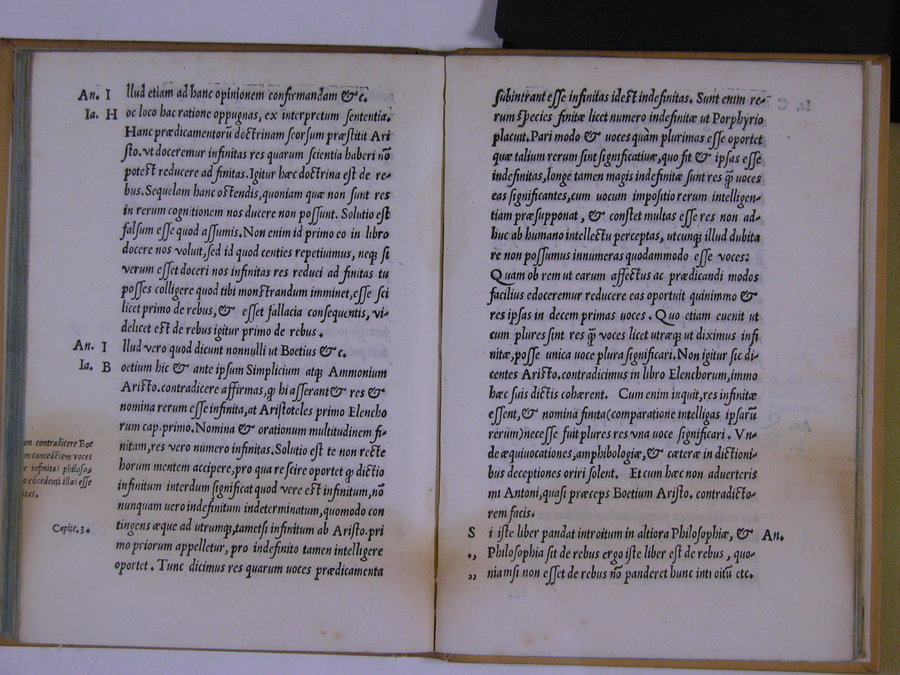 An. I llud etiam ad hanc opinionem confirmandam & c.
Ia. H oc loco hac ratione oppugnas, ex interpretum sententia.
Hanc prædicamentorū doctrinam seorsum præstitit Ari
sto. vt doceremur infinitas res quarum scientia haberi nō
potest reducere ad finitas. Igitur hæc doctrina est de re-
bus. Sequelam hanc ostendis, quoniam quæ non sunt res
in rerum cognitionem nos ducere non possunt. Solutio est
falsum esse quod assumis. Non enim id primo eo in libro
docere nos voluit, sed id quod centies repetiuimus, neq; si
verum esset doceri nos infinitas res reduci ad finitas tu
posses colligere quod tibi monstrandum imminet, esse sci
licet primo de rebus, & esset fallacia consequentis, vi-
delicet est de rebus igitur primo de rebus.
An. I llud vero quod dicunt nonnulli ut Boetius & c.
Ia. B oetium hic & ante ipsum Simplicium atq; Ammonium
Aristo. contradicere affirmas, q̃ hi asserant & res &
nomina rerum esse infinita, at Aristoteles primo Elencho
rum cap. primo. Nomina & orationum multitudinem fi-
nitam, res vero numero infinitas. Solutio est te non recte
horum mentem accipere, pro qua re scire oportet q̃ dictio
infinitum interdum significat quod vere est infinitum, nō
nunquam uero indefinitum indeterminatum, quomodo con
tingens æque ad utrumq;, tametsi infinitum ab Aristo. pri
mo priorum appelletur, pro indefinito tamen intelligere
oportet. Tunc dicimus res quarum voces prædicamenta
on contradicere Boe
m concediém voces
e infinitas philoso,
o cōcedenti illas esse
itas.
Capite. 3.
subintrant esse infinitas idest indefinitas. Sunt enim re-
rum species finitæ licet numero indefinitæ ut Porphyrio
placut. Pari modo & uoces quàm plurimas esse oportet
quæ talium rerum sint significatiuæ, quo fit & ipsas esse
indefinitas, longe tamen magis indefinitæ sunt res q̃ uoces
eas significantes, cum uocum impositio rerum intelligen-
tiam præsupponat, & constet multas esse res non ad-
huc ab humano intellectu perceptas, utcunq; illud dubita
re non possumus innumeras quodammodo esse voces.
Quam ob rem ut earum affectus ac prædicandi modos
facilius edoceremur reducere eas oportuit quinimmo &
res ipsas in decem primas uoces. Quo etiam euenit ut
cum plures sint res q̃ voces licet utræq; ut diximus infi
nitæ, posse unica uoce plura significari. Non igitur sic di-
centes Aristo. contradicimus in libro Elenchorum, immo
hæc suis dictis cohærent. Cum enim inquit, res infinitæ
essent, & nomina finita (comparatione intelligas ipsarū
rerum) necesse fuit plures res vna uoce significari. Vn-
de æquiuocationes, amphibologiæ, & cæteræ in dictioni-
bus deceptiones oriri solent. Et cum hæc non aduerteris
mi Antoni, quasi præceps Boetium Aristo. contradicto-
rem facis.
S i iste liber pandat introitum in altiora Philosophiæ, & An.
,, Philosophia sit de rebus ergo iste liber est de rebus, quo-
,, niam si non esset de rebus nō panderet hunc introitū etc.